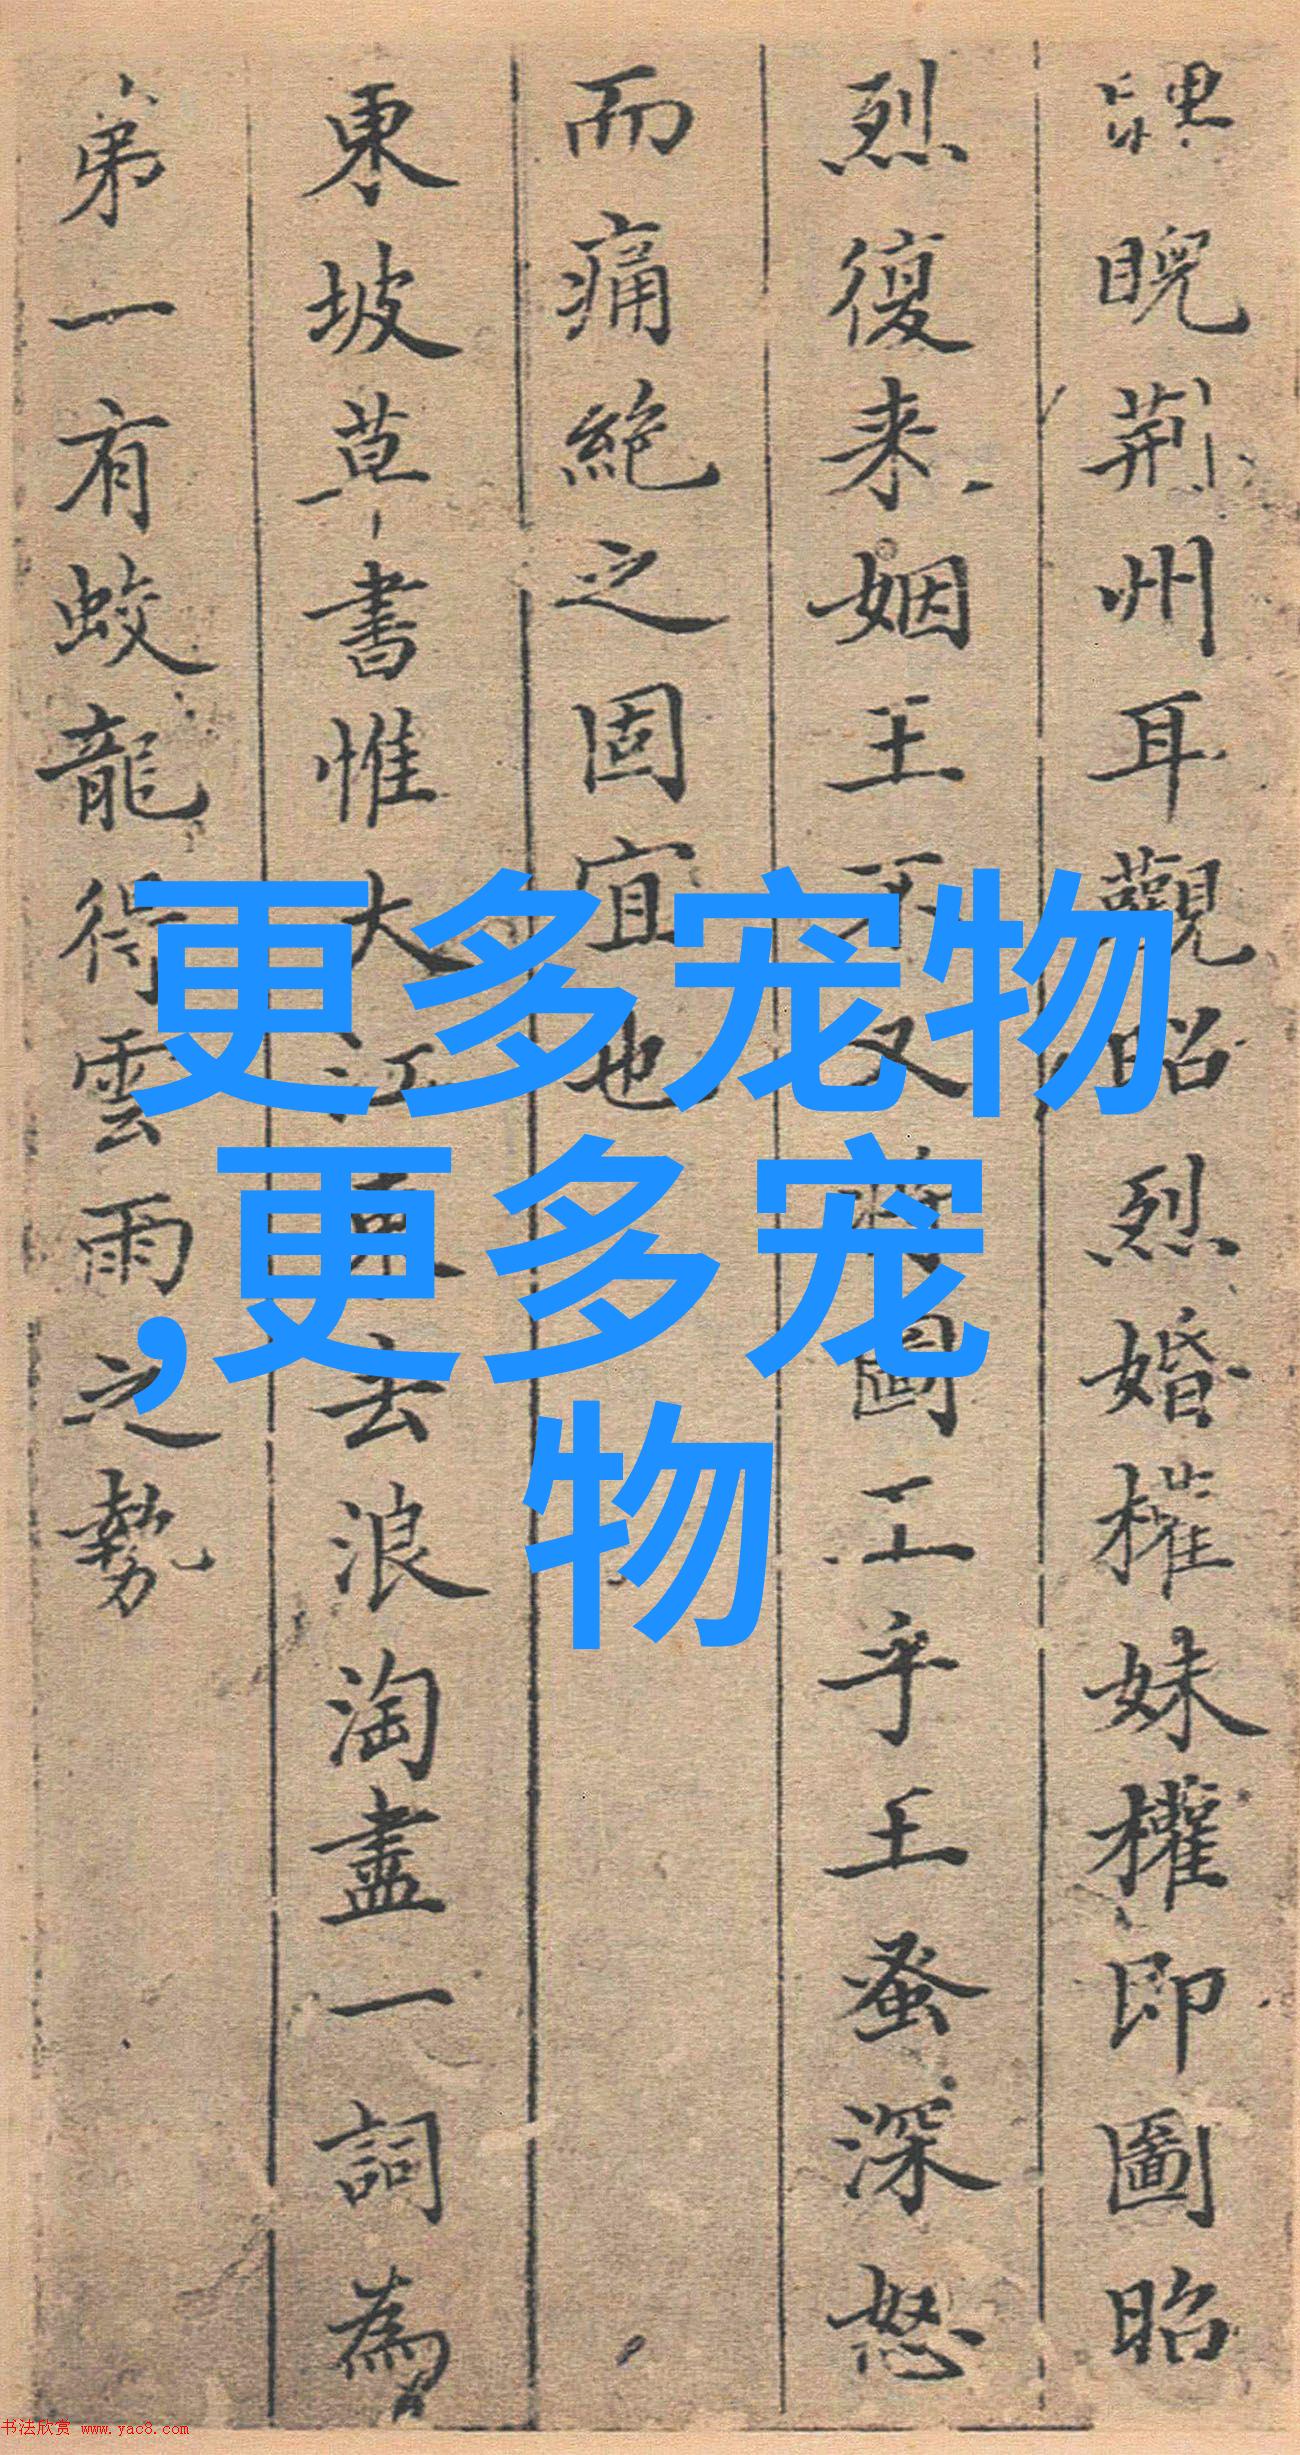 睨荊州耳觀昭烈婚權妹權即圖昭
烈復来姻王不又圖工乎王蚤深怒
而痛絶之固宜也
東坡草書惟大江東去浪淘盡一詞為
弟一有蛟龍得雲雨之勢
更多宠物
,更多宠
物
书法欣赏 www.yac8.com